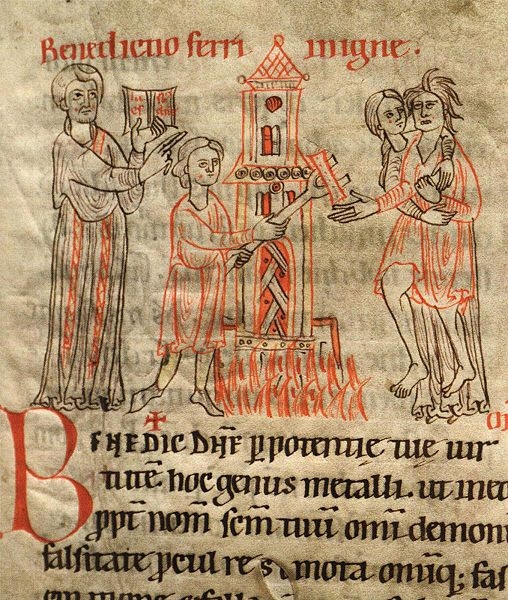 Benedictio ferri in igne.
BENEDIC DÑE ꝑ potentie tue uir
tutē. hoc genus metalli. ut in
ꝓpt̄ nom̄ scm̄ tuū. om̄i demoni
falsitate ꝓcul re mota om̄iq; fas